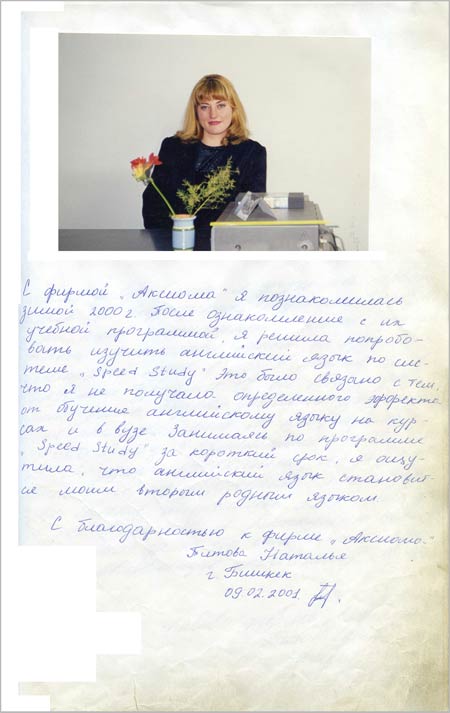 С фирмой „Аксиома" я познакомилась
зимой 2000 г. После ознакомления с их
учебной программой, я решила попробо-
вать изучить английский язык по сис-
теме „Speed Study" Это было связано с тем,
что я не получала определенного эффекта
от обучения английскому языку на кур-
сах и в вузе. Занимаясь по программе
„Speed Study" за короткий срок, я ощу-
тила, что английский язык становит-
ся моим вторым родным языком.
С благодарностью к фирме „Аксиома"
Наталья
г Бишкек
09.02.2001